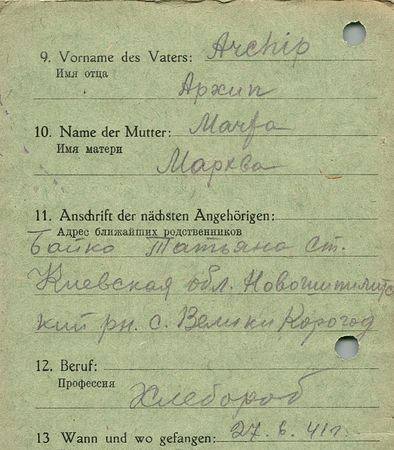 9. Vorname des Vaters: Archip
Имя отца
Архип
10. Name der Mutter: Marfa
Имя матери
Марква
11. Anschrift der nächsten Angehörigen:
Адрес ближайших родственников
Бойко Татьяна ст.
Киевская обл. Новошипилитс
кий рн. с. Велики Корогод
12. Beruf:
Профессия
Хлебороб
13 Wann und wo gefangen: 27. 6. 41 г.